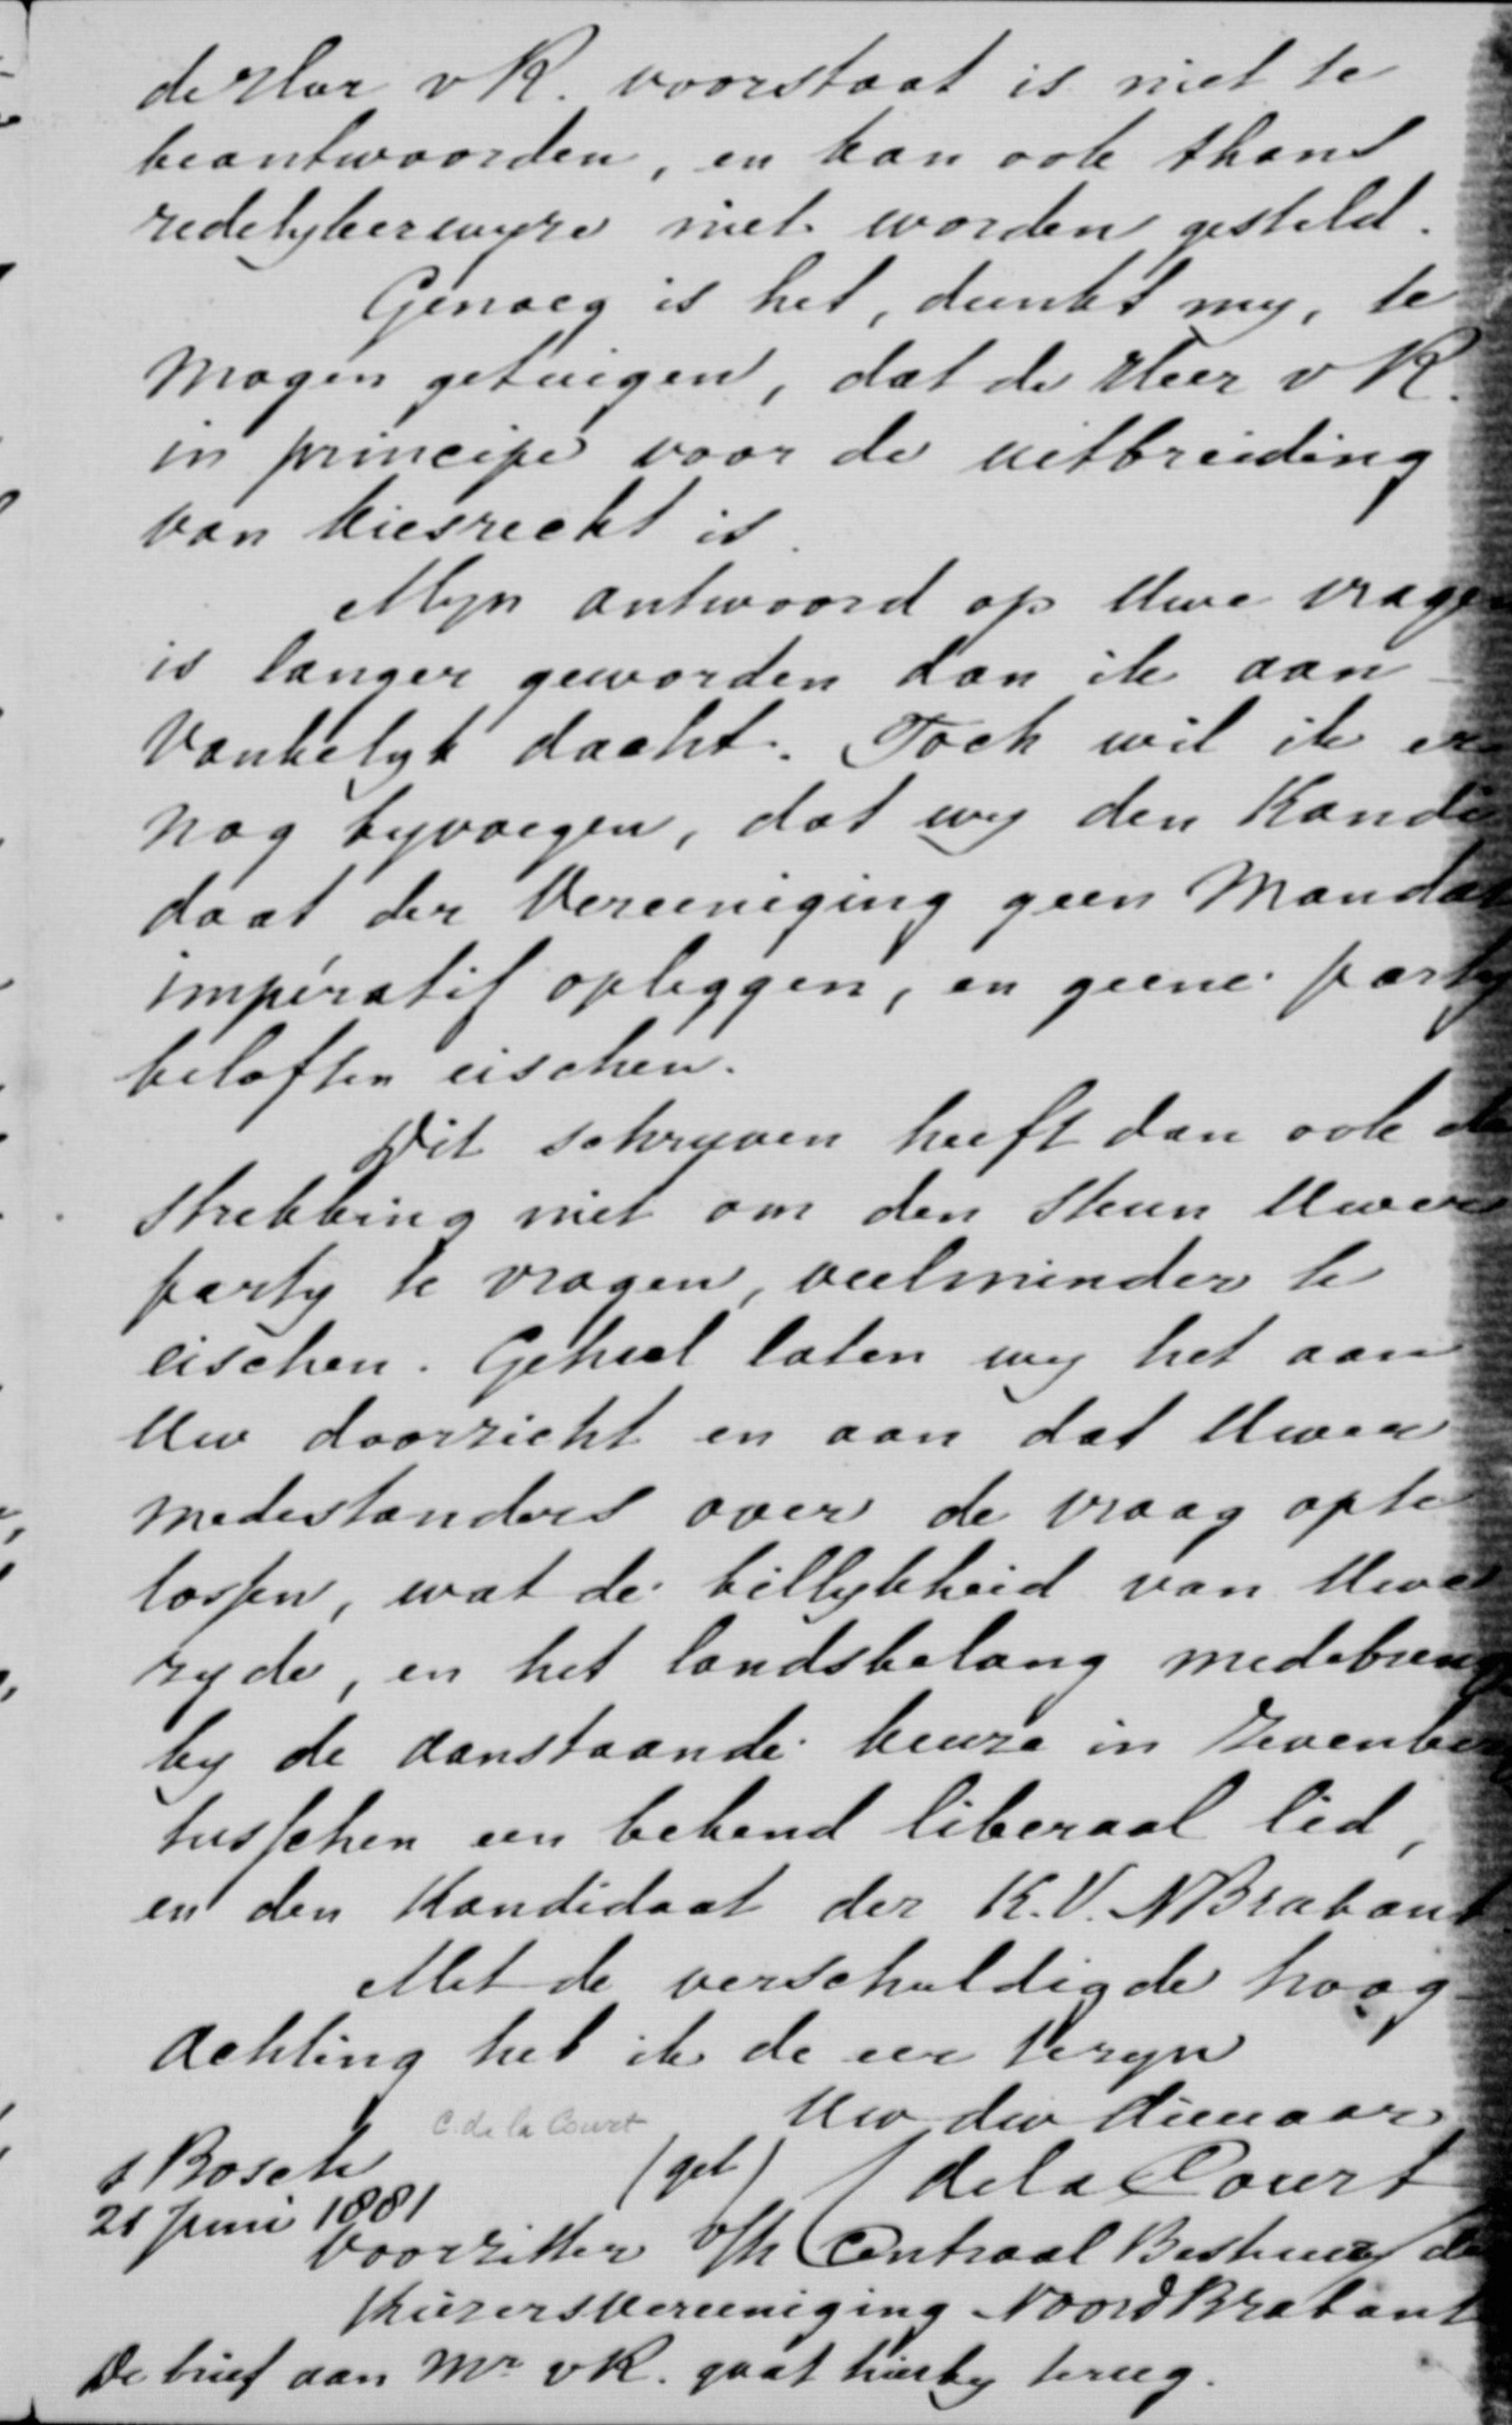 de Heer v R. voorstaat is niet te
beantwoorden, en kan ook thans
redelykerwyze niet worden gesteld.
Genoeg is het, dunkt my, te
mogen getuigen, dat de Heer v R.
in principe voor de uitbreiding
van kiesrecht is.
Myn antwoord op Uwe vragen
is langer geworden dan ik aan-
vankelyk dacht. Toch wil ik er
nog byvoegen, dat wy den Kandi
daat der Vereeniging geen Mandat
impératif opleggen, en geene party
beloften eischen.
Dit schryven heeft dan ook de
strekking niet om den steun Uwer
party te vragen, veelminder te
eischen. Geheel laten wy het aan
Uw doorzicht en aan dat Uwer
medestanders over de vraag opte
lossen, wat de billykheid van Uwe
zyde, en het landsbelang medebreng
by de aanstaande keuze in Zevenber
tusschen een bekend liberaal lid,
en den Kandidaat der K.V. NBrabant
Met de verschuldigde hoog-
achting heb ik de eer te zyn
Uw dw dienaar
C. de la Court
s Bosch
(get) de la Court
21 Juni 1881
Voorzitter v/h Centraal Bestuur de
Kiezersvereeniging Noord Brabant
De brief aan Mr vR. gaat hierby terug.